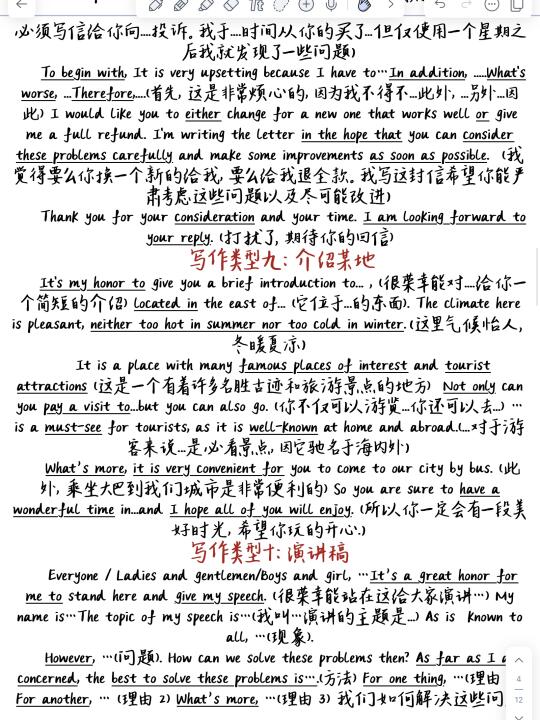 必须写信给你向....投诉。我于....时间从你的买了...但仅使用一个星期之
后我就发现了一些问题)
To begin with, It is very upsetting because I have to…In addition, .....What's
worse, ...Therefore,...(首先, 这是非常烦心的, 因为我不得不...此外, ...另外...因
此,) I would like you to either change for a new one that works well or give
me a full refund. I'm writing the letter in the hope that you can consider
these problems carefully and make some improvements as soon as possible. (我
觉得要么你换一个新的给我, 要么给我退全款。我写这封信希望你能严
肃考虑这些问题以及尽可能改进)
Thank you for your consideration and your time. I am looking forward to
your reply. (打扰了, 期待你的回信)
写作类型九: 介绍某地
It's my honor to give you a brief introduction to... , (很荣幸能对....给你一
个简短的介绍) located in the east of... (它位于...的东面). The climate here
is pleasant, neither too hot in summer nor too cold in winter.(这里气候怡人,
冬暖夏凉)
It is a place with many famous places of interest and tourist
attractions (这是一个有着许多名胜古迹和旅游景点的地方) Not only can
you pay a visit to...but you can also go. (你不仅可以游览...你还可以去...) …
is a must-see for tourists, as it is well-known at home and abroad.(...对于游
客来说...是必看景点, 因它驰名于海内外)
What's more, it is very convenient for you to come to our city by bus. (此
外, 乘坐大巴到我们城市是非常便利的) So you are sure to have a
wonderful time in...and I hope all of you will enjoy. (所以你一定会有一段美
好时光, 希望你玩的开心.)
写作类型十: 演讲稿
Everyone / Ladies and gentlemen/Boys and girl, …It's a great honor for
me to stand here and give my speech. (很荣幸能站在这给大家演讲…) My
name is…The topic of my speech is…(我叫…演讲的主题是...) As is known to
all, …(现象).
However, …(问题). How can we solve these problems then? As far as I a
concerned, the best to solve these problems is….(方法) For one thing, …(理由
For another, … (理由 2) What's more, …(理由 3) 我们如何解决这些问
4
12